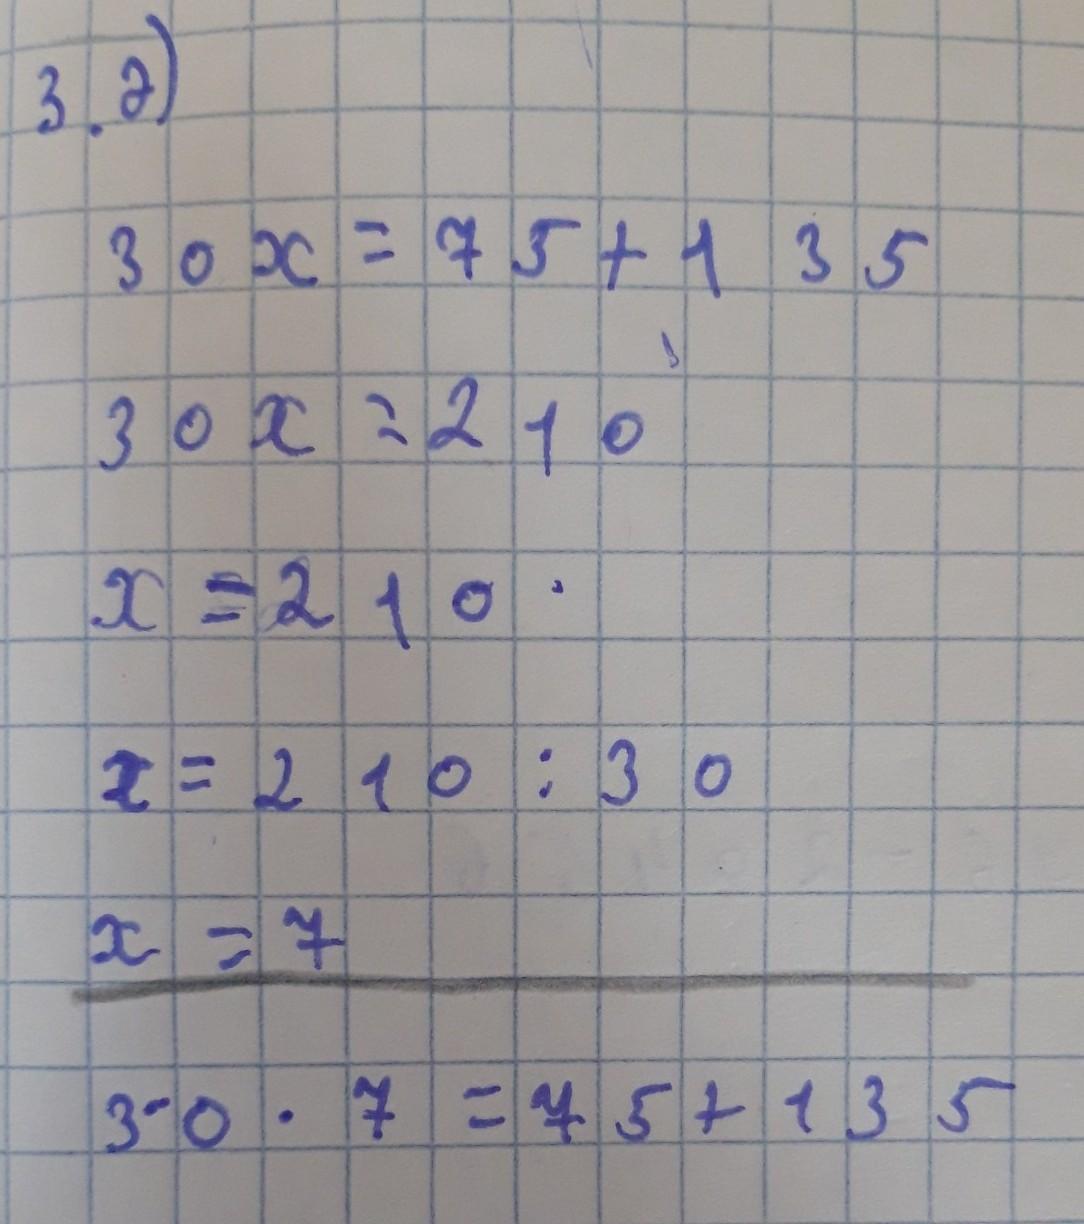 3.2)
30x=75+135
30x=210
x=210·
x=210:30
x=7
30·7=75+135